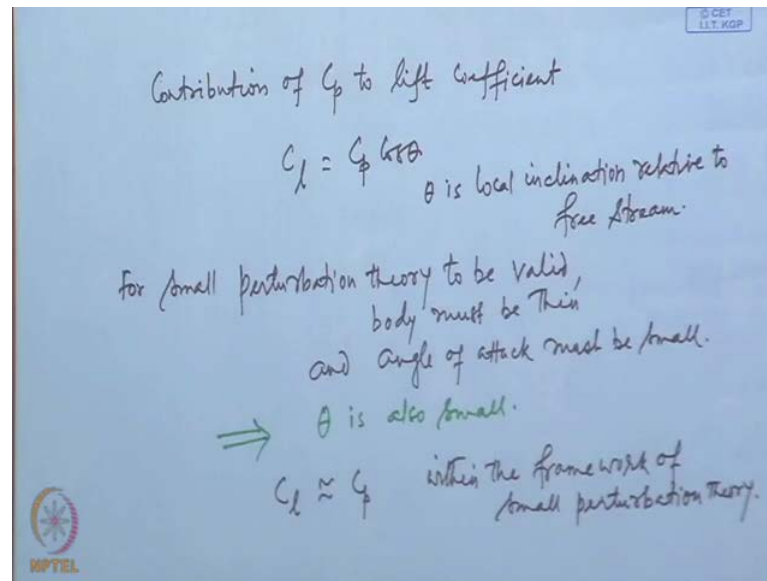 © CET
I.I.T. KGP
Contribution of Cp to lift coefficient
Cl = Cp Cosθ
θ is local inclination relative to
free stream.
For small perturbation theory to be valid,
body must be thin
and angle of attack must be small.
⇒ θ is also small.
Cl ≈ Cp within the framework of
small perturbation theory.
NPTEL